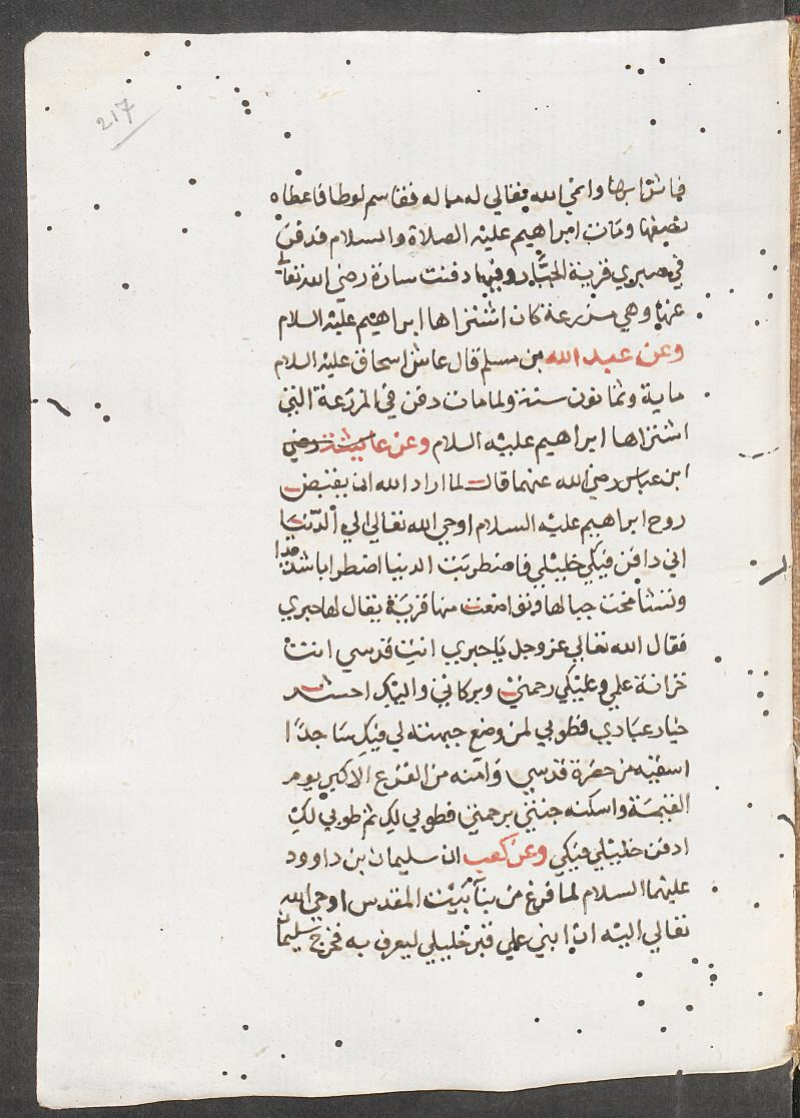 217
فاشتراها وانمي الله تعالي له ماله فقاسم لوطا فاعطاه
نصيفها ومات ابراهيم عليه الصلاة والسلام فدفن
في حبري قرية الجبار وفيها دفنت سارة رضي الله تعالي
عنها وهي مزرعة كان اشتراها ابراهيم عليه السلام
وعن عبد الله بن مسلم قال عاش اسحاق عليه السلام
ماية وثمانون سنة ولما مات دفن في المزرعة التي
اشتراها ابراهيم عليه السلام وعن عايشة رضي
ابن عباس رضي الله عنهما قال لما اراد الله ان يقبض
روح ابراهيم عليه السلام اوحي الله تعالي الي الدنيا
اني دافن فيكي خليلي فاضطربت الدنيا اضطرابا شديدا
وتشامخت جبالها وتواضعت منها قرية يقال لها حبري
فقال الله تعالي عز وجل يا حبري انت قدسي انت
خزانة علمي وعليكي رحمتي وبركاتي واليك احشر
خيار عبادي فطوبي لمن وضع جبهته لي فيك ساجدا
اسقيه من حضرة قدسي وامنه من الفزع الاكبر يوم
القيمة واسكنه جنتي برحمتي فطوبي لك ثم طوبي لك
ادفن خليلي فيكي وعن كعب ان سليمان ابن داوود
عليهما السلام لما فرغ من بنآ بيت المقدس اوحي الله
تعالي اليه ان ابني علي قبر خليلي ليعرف به فخرج سليمان